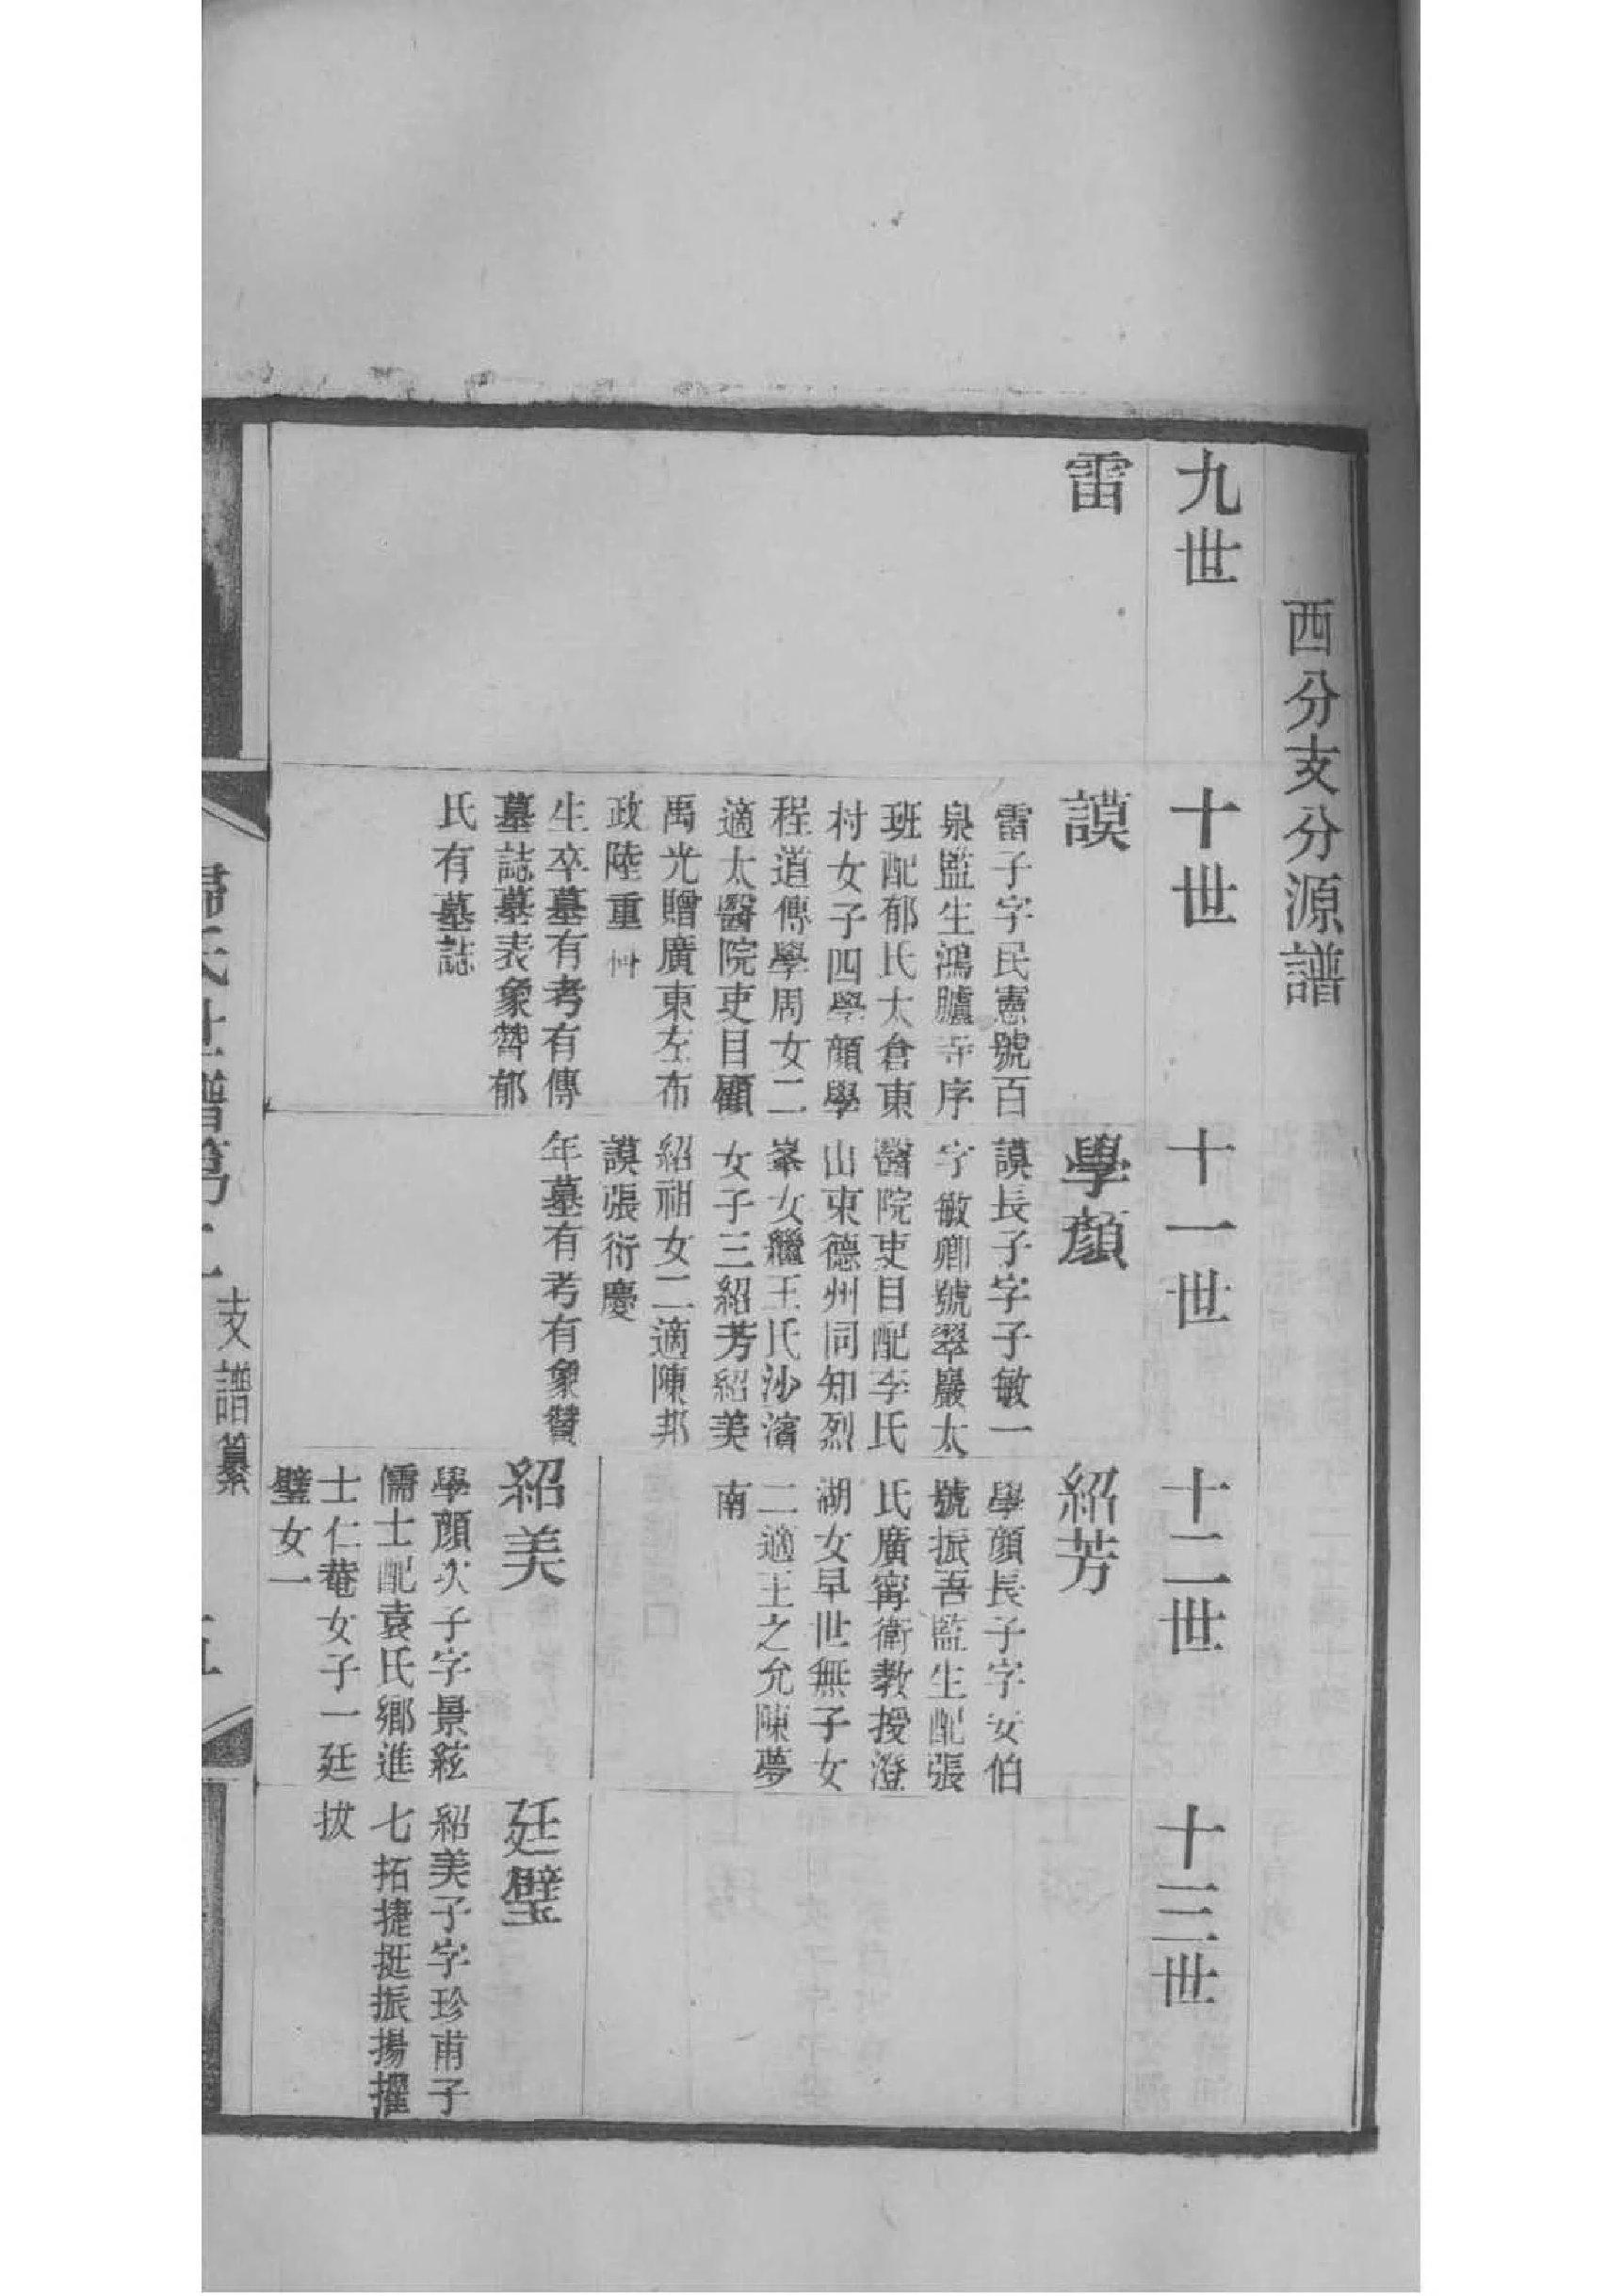 西分支分源譜
九世
十世
十一世
十二世
十三世
雷
謨
雷子字民憲號百
泉監生鴻臚寺序
班配郁氏太倉東
村女子四學顏學
程道傳學周女二
適太醫院吏目顧
禹光贈廣東左布
政陸重
生卒墓有考有傳
墓誌墓表象贊郁
氏有墓誌
學顏
謨長子字子敏一
字敏卿號翠巖太
醫院吏目配李氏
山東德州同知烈
峯女繼王氏沙濱
女子三紹芳紹美
紹祖女二適陳邦
謨張衍慶
年墓有考有象贊
紹芳
學顏長子字安伯
號振吾監生配張
氏廣甯衛教授澄
湖女早世無子女
二適王之允陳夢
南
紹美
學顏次子字景絃
儒士配袁氏鄉進
士仁菴女子一廷
璧女一
廷璧
紹美子字珍甫子
七拓捷挺振揚擢
拔
歸氏世譜第
支譜纂